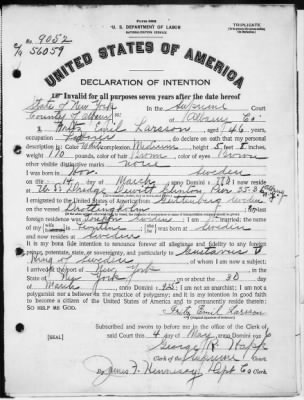 Form 2203
TRIPLICATE
No. 9052
U. S. DEPARTMENT OF LABOR
NATURALIZATION SERVICE
56059
UNITED STATES OF AMERICA
DECLARATION OF INTENTION
Invalid for all purposes seven years after the date hereof
State of New York
In the Supreme Court
County of Albany
of Albany Co.
I, Fritz Emil Larsson, aged 46 years,
occupation, do declare on oath that my personal
description is: Color White, complexion Medium, height 5 feet 8 inches,
weight 170 pounds, color of hair Brown, color of eyes Brown
other visible distinctive marks None
I was born in Sweden
on the 14 day of March, anno Domini 1; I now reside
at U. S. Dredge Dewitt Clinton, Pier
I emigrated to the United States of America from Gothenburg Sweden
on the vessel Drottningholm; my last
foreign residence was Sweden; I am married; the name
of my wife is Pauline; she was born at Sweden
and now resides at Sweden
It is my bona fide intention to renounce forever all allegiance and fidelity to any foreign
prince, potentate, state, or sovereignty, and particularly to Gustavus V
King of Sweden, of whom I am now a subject;
I arrived at the port of New York, in the
State of New York, on or about the 30 day
of March, anno Domini 1925; I am not an anarchist; I am not a
polygamist nor a believer in the practice of polygamy; and it is my intention in good faith
to become a citizen of the United States of America and to permanently reside therein:
SO HELP ME GOD.
Fritz Emil Larsson
Subscribed and sworn to before me in the office of the Clerk of
[SEAL]
said Court this 4 day of May, anno Domini
George
Clerk of the Supreme Court.
By James F. Hennessy, Dept Co Clerk.